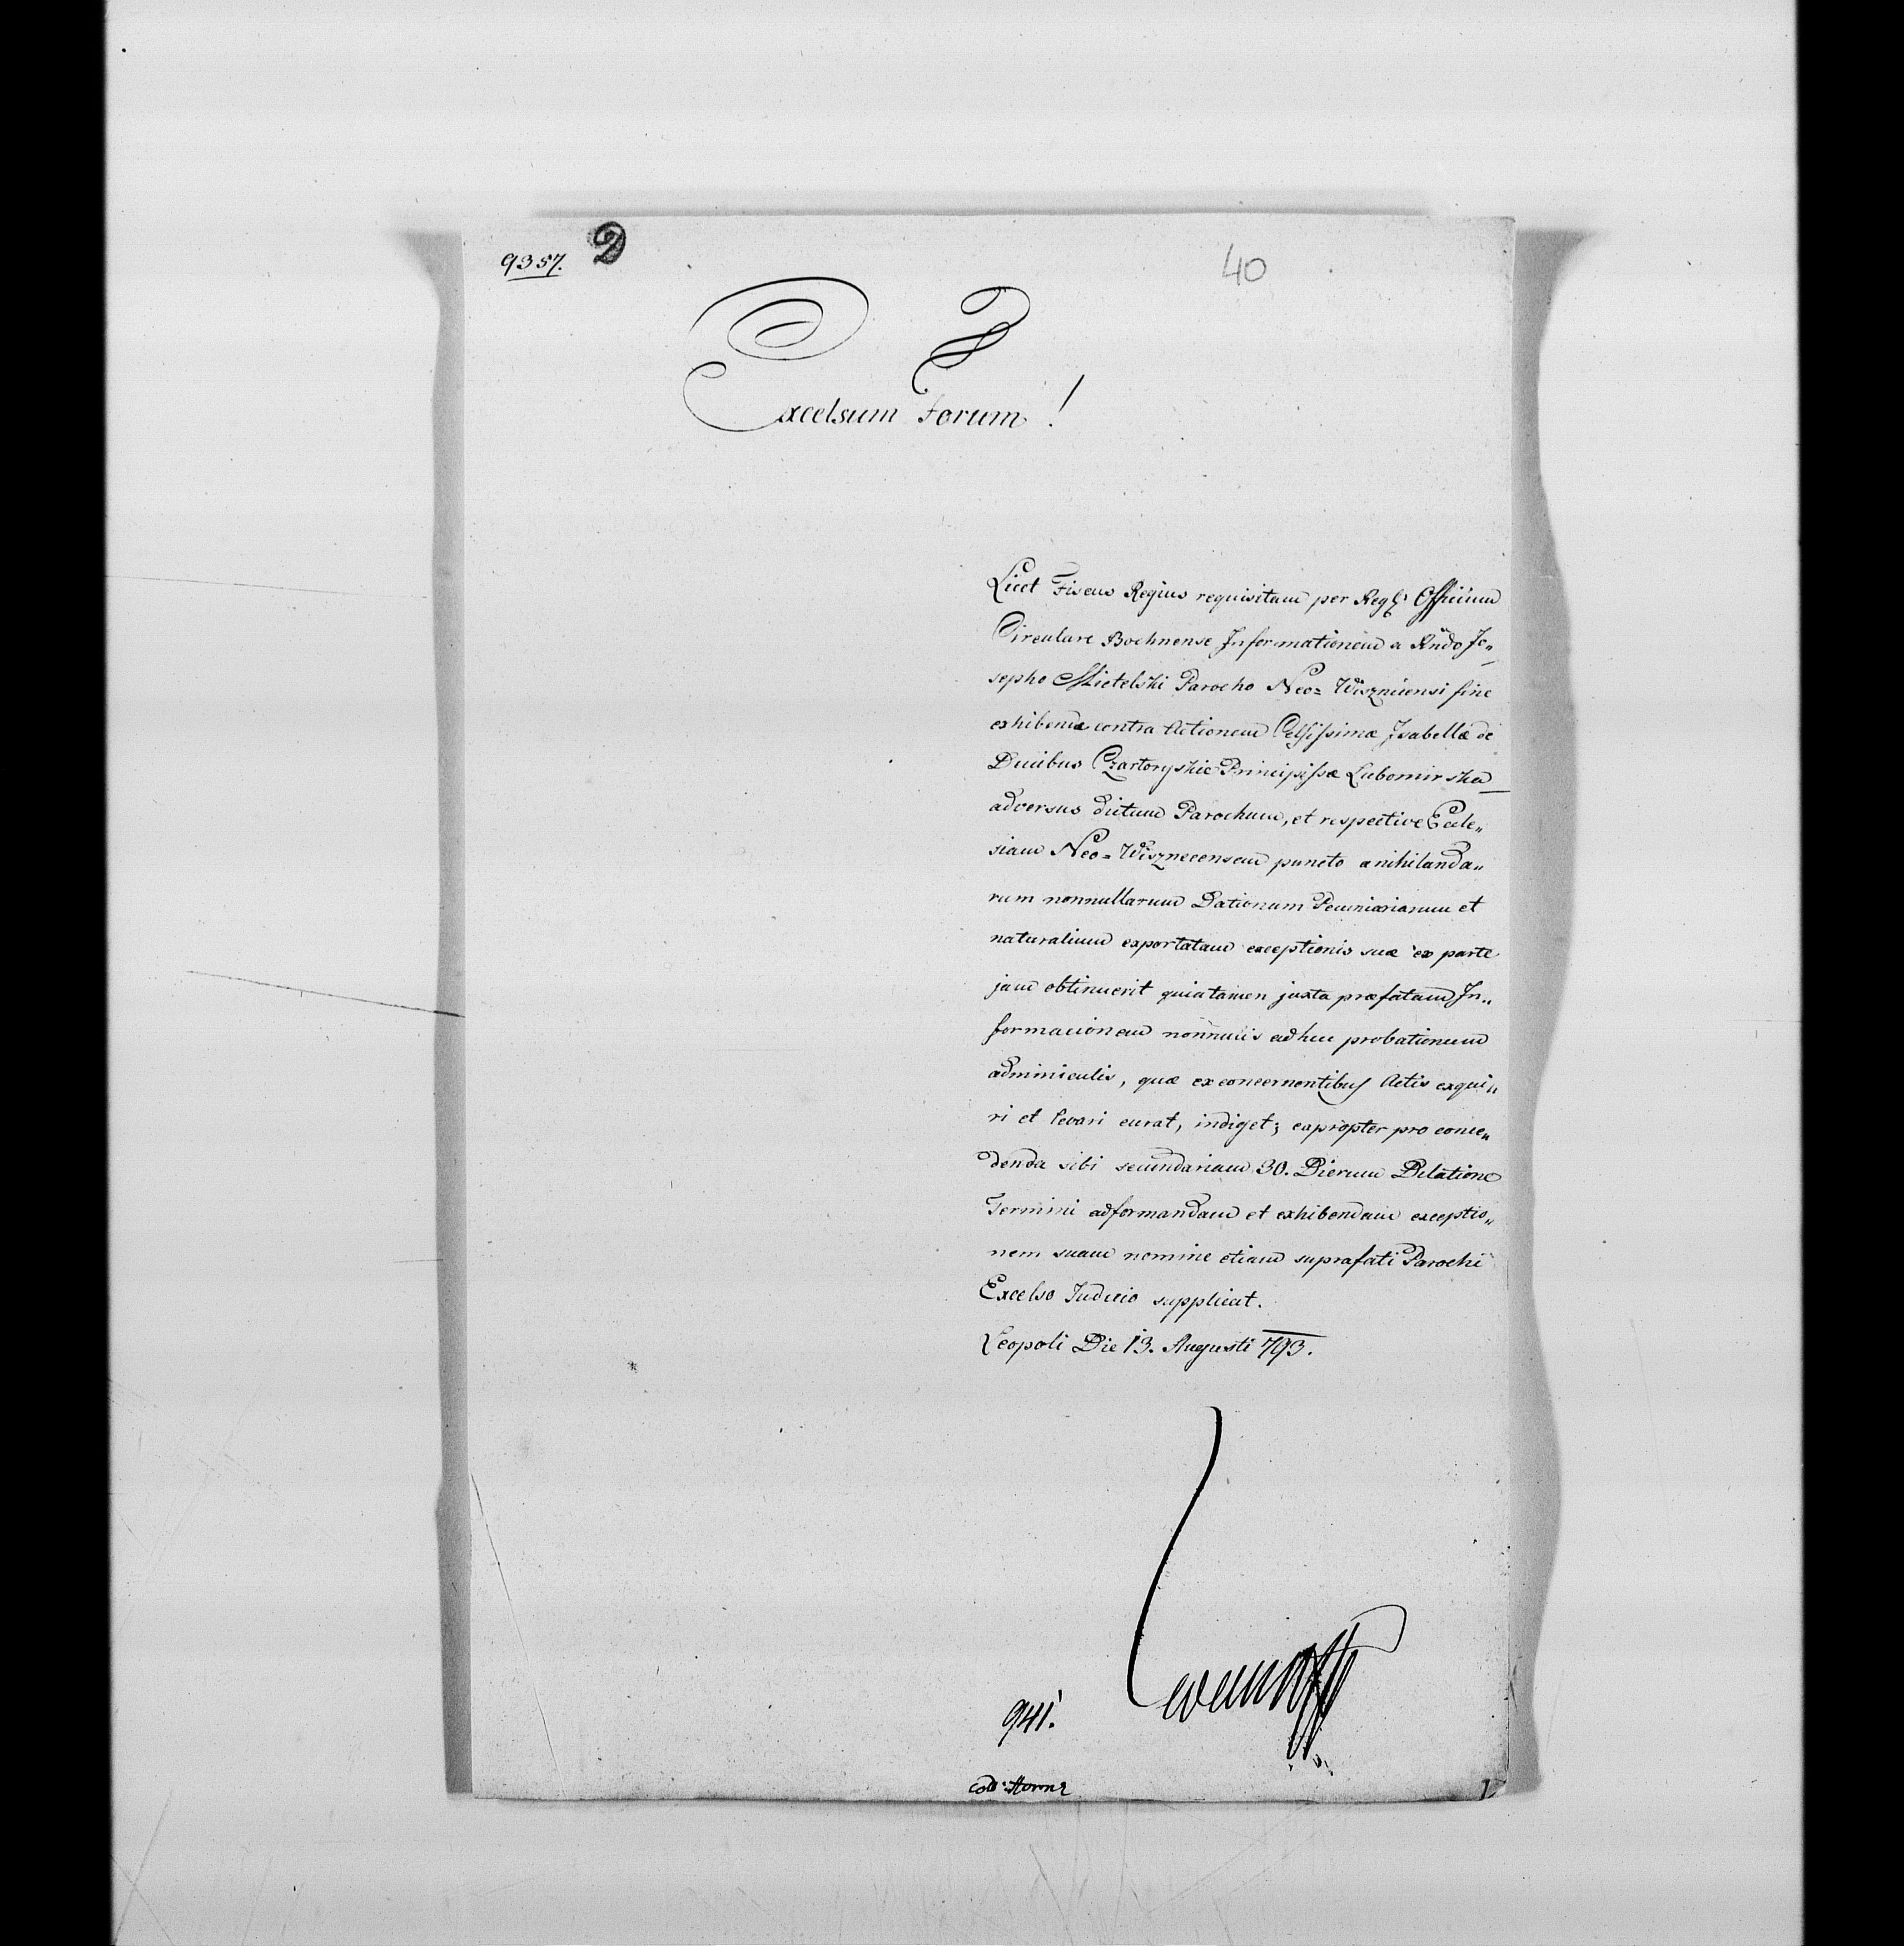 9357. D
40
Excelsum Forum!
Licet Fiscus Regius requisitam per Reg: Officium
Circulare Bochnense Informationem a Rndo Jo„
sepho Mietelski Parocho Neo= Wiszniensi fine
exhibendæ contra Actionem Celsissimæ Isabellæ de
Ducibus Czartoryskie Principissæ Lubomirska
adversus dictum Parochum, et respective Eccle„
siam Neo= Wisznecensem puncto anihilanda„
rum nonnullarum Dationum Pecuniariarum et
naturalium exportatam exceptionis suæ ex parte
jam obtinuerit quia tamen juxta præfatam In„
formacionem nonnullis adhuc probationum
adminiculis, quæ ex concernentibus Actis exqui„
ri et levari curat, indiget; eapropter pro conce„
denda sibi secundariam 30. Dierum Dilatione
Termini ad formandam et exhibendam exceptio„
nem suam nomine etiam suprafati Parochi
Excelso Judicio supplicat.
Leopoli Die 13. Augusti 793.
941.